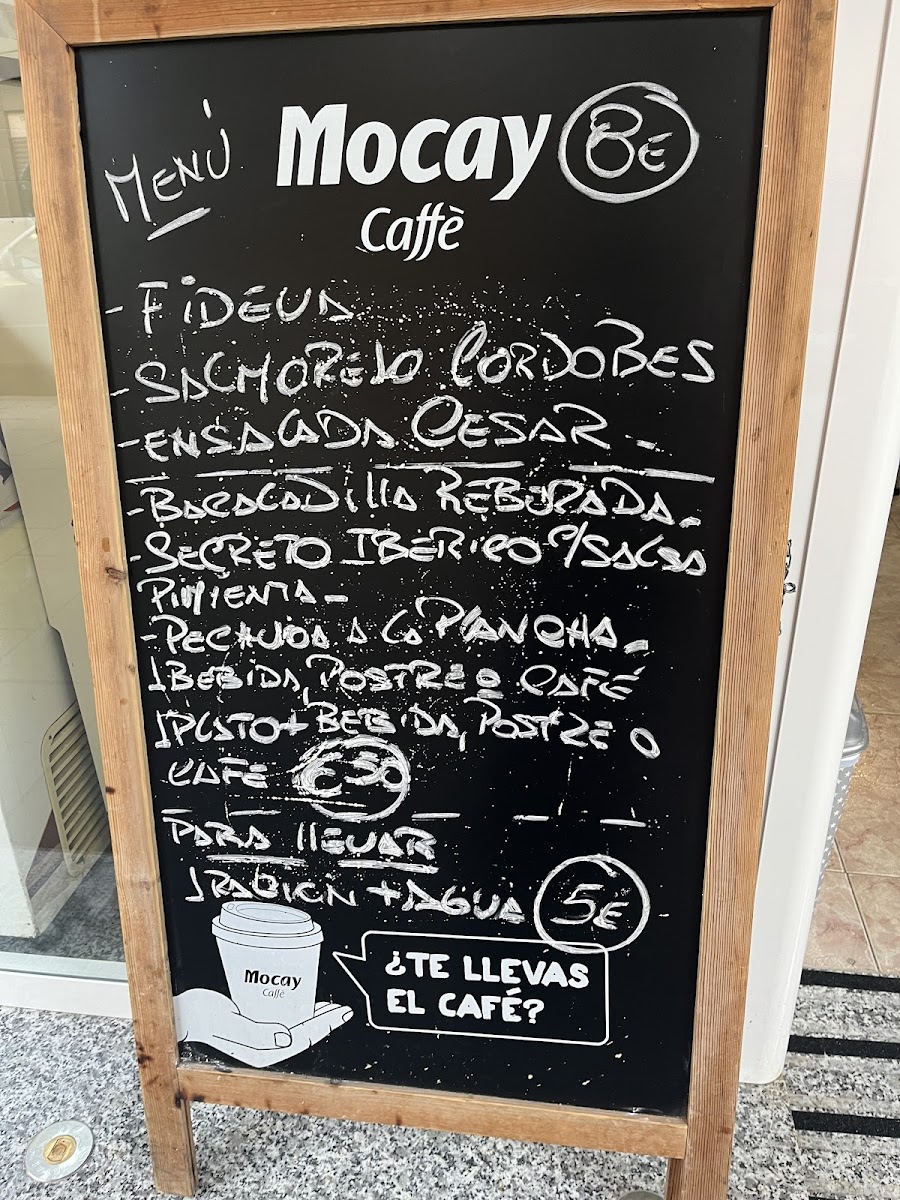 MENÚ
Mocay
8€
Caffè
- FIDEUA
- SALMOREJO CORDOBES
- ENSALADA CESAR -
- BACALADILLA REBOZADA.
- SECRETO IBERICO C/SALSA
PIMIENTA -
- PECHUGA A LA PLANCHA.
1BEBIDA, POSTRE O CAFÉ
1PLATO + BEBIDA, POSTRE O
CAFE 6'50
PARA LLEVAR
1RACIÓN + AGUA 5€
Mocay
Caffè
¿TE LLEVAS
EL CAFÉ?